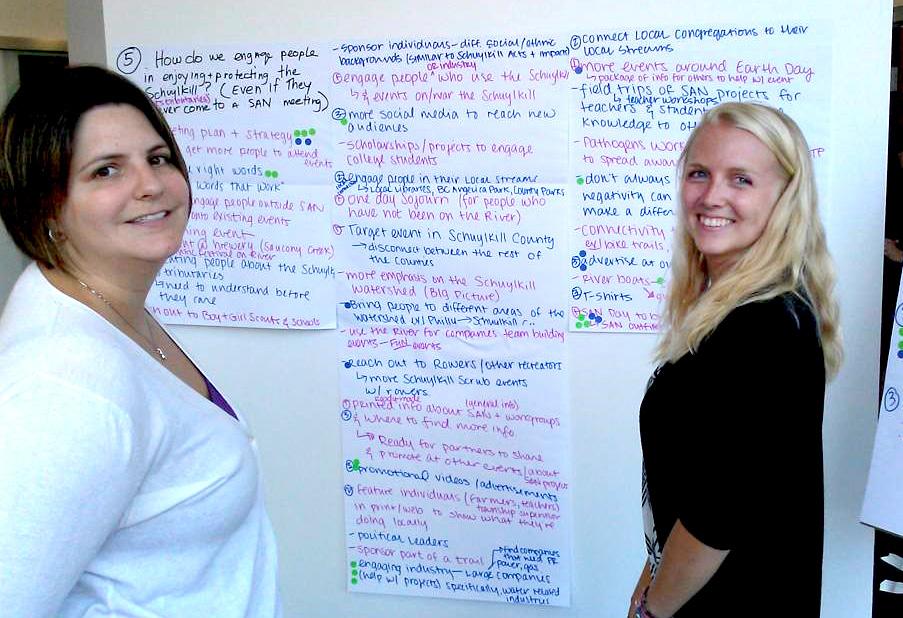 5 How do we engage people
in enjoying + protecting the
Schuylkill? (Even if They
ver come to a SAN meeting)
eting plan + strategy
get more people to attend
events
right words
words that work"
engage people outside SAN
onto existing events
ning event
at a brewery (Saucony Creek)
festival on River
ating people about the Schuylk
tributaries
need to understand before
they care
h out to Boy + Girl Scouts & schools
- sponsor individuals - diff. social/ethnic
backgrounds (similar to Schuylkill Acts + Impact)
or industry
engage people ^ who use the Schuylkill
↳ & events on/near the Schuylkill
more social media to reach new
audiences
- scholarships/projects to engage
college students
engage people in their Local streams
↳ Local libraries, BC Angelica Park, County Parks
One day Sojourn (for people who
have not been on the River)
Target event in Schuylkill County
→ disconnect between the rest of
the counties
- more emphasis on the Schuylkill
Watershed (Big Picture)
Bring people to different areas of the
watershed
- use the River for companies team building
events - FUN events
reach out to Rowers/other recreators
↳ more Schuylkill Scrub events
w/ rowers
(general info)
printed info about SAN + workgroups
& where to find more info
↳ Ready for partners to share
& promote at other events/about
SAN projects
promotional videos/advertisements
feature individuals (farmers, teachers)
township supervisor
in print/web to show what they're
doing locally
- political leaders
- sponsor part of a trail
find companies
that need PR
power, gas
engaging industry - Large companies
(help w/ projects) specifically, water related
industries
connect Local congregations to their
local streams
more events around Earth Day
↳ package of info for others to help w/ event
- field trips of SAN projects for
↳ teacher workshops
teachers & student
knowledge to ot
- Pathogens Work
to spread awar
- don't always
negativity can
make a differ
- connectivity
ex/ lake trails,
advertise at ou
- River boats
T-shirts
SAN Day to b
SAN outfi
3